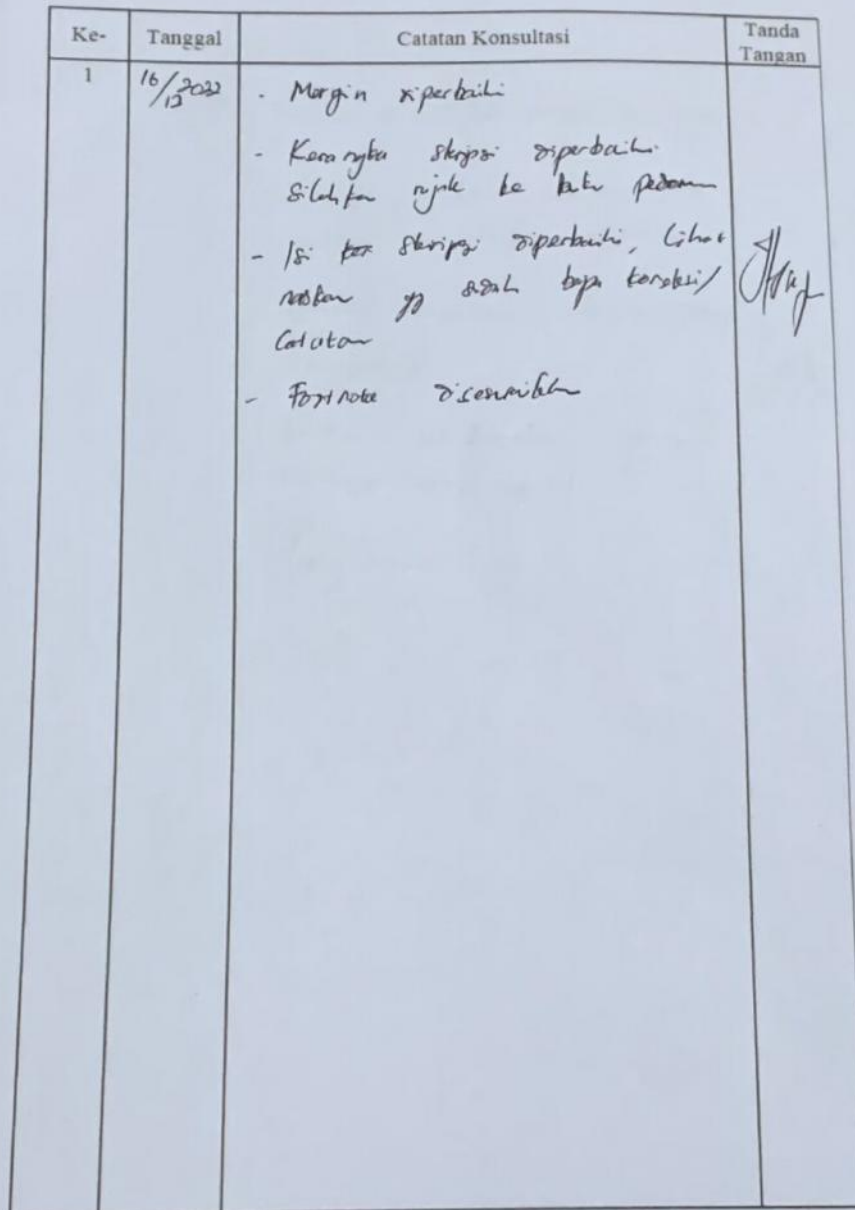 Ke- Tanggal Catatan Konsultasi Tanda Tangan
1 16/12 2022 - Margin diperbaiki
- Kerangka skripsi diperbaiki.
Silahkan rujuk ke buku pedoman
- Isi skripsi diperbaiki, lihat
naskah yg sudah bapa koreksi/
Catatan
- Footnote disesuaikan